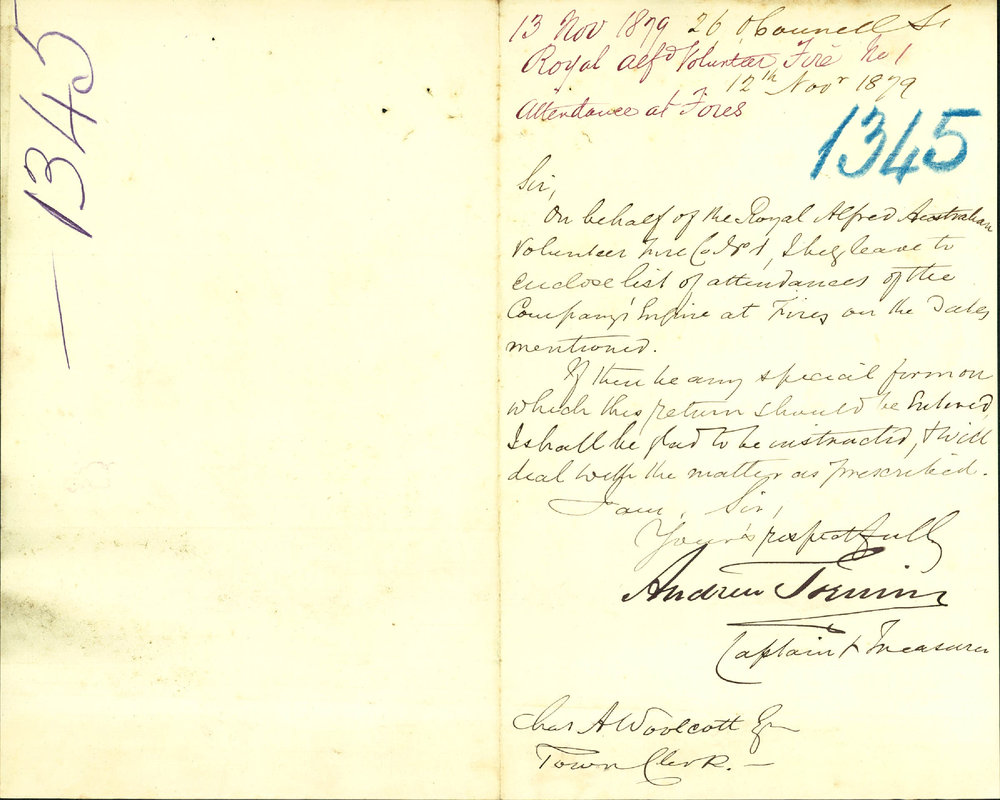 1345
13 Nov 1879 26 O'Connell St
Royal Alfd Volunteer Fire No 1
12th Novr 1879
Attendance at Fires
1345
Sir,
On behalf of the Royal Alfred Australian
Volunteer Fire Co No 1, I beg leave to
enclose list of attendances of the
Company's Engine at Fires on the Dates
mentioned.
If there be any special form on
which this return should be Entered,
I shall be glad to be instructed, & will
deal with the matter as prescribed.
I am, Sir,
Yours respectfully
Andrew
Captain & Treasurer
Chas A Woolcott Esq
Town Clerk. —